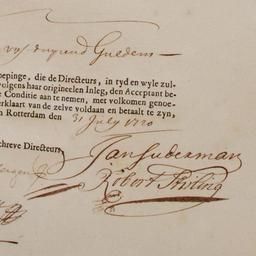 vyf duysend Guldens
oepinge, die de Directeurs, in tyd en wyle zul-
volgens haar origineelen Inleg, den Acceptant be-
e Conditie aan te nemen, met volkomen genoe-
erklaart van de zelve voldaan en betaalt te zyn,
n Rotterdam den 31 July 1720
chreve Directeurs
Jan Suderman
Robert Stviling